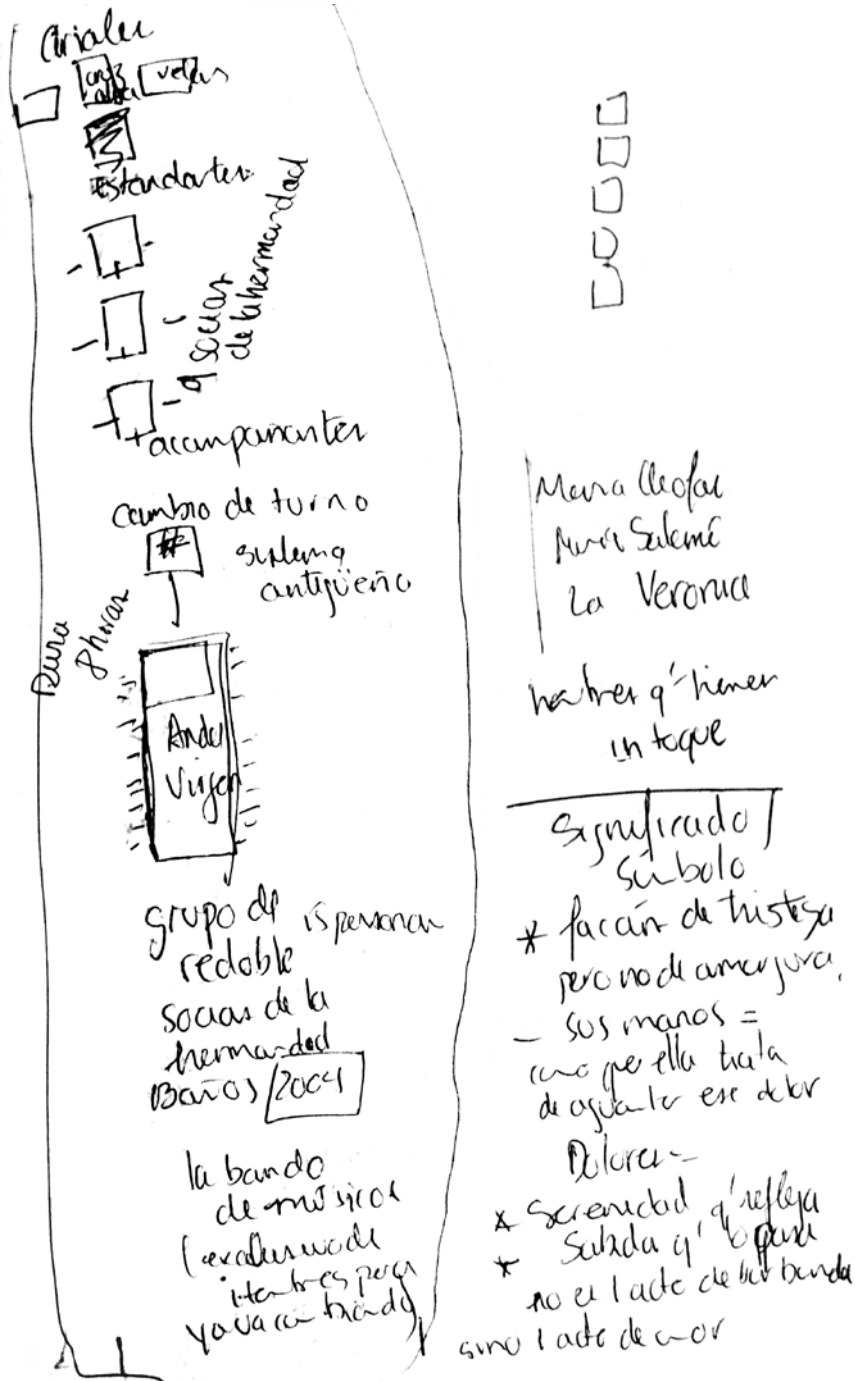 Ciriales
cruz alta
velas
estandartes
9 socias
de la hermandad
+ acompañantes
cambio de turno
sistema
antigüeño
Dura
8 horas
Anda
Virgen
grupo de
redoble
15 personas
socias de la
hermandad
Baños 2004
la banda
de músicos
hombres pero
ya va cambiando
Maria Cleofas
Maria Salomé
La Veronica
hombres q' tienen
un toque
Significado /
Símbolo
* facción de tristeza
pero no de amargura.
- sus manos =
como que ella trata
de aguantar ese dolor
Dolores -
* Serenidad q' refleja
* Salida q'
no es 1 acto de banda
sino 1 acto de amor